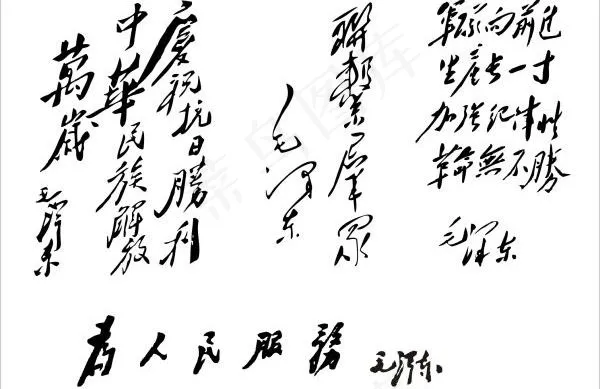 慶祝抗日勝利
中華民族解放
萬歲
毛澤东
聯繫羣眾
毛泽东
軍隊向前進
生產長一寸
加強紀律性
革命無不勝
毛泽东
為人民服務 毛泽东
菜鸟图库